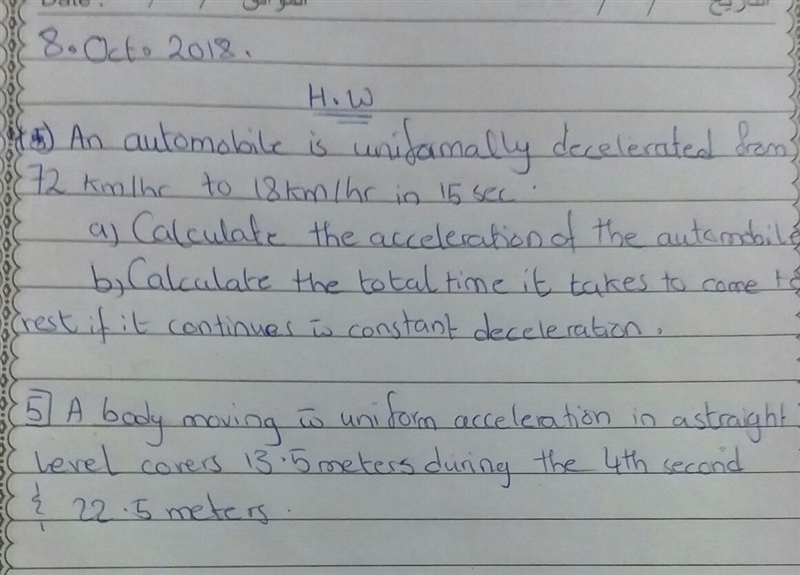 8. Oct. 2018.
H.W
5) An automobile is uniformally decelerated from
72 km/hr to 18 km/hr in 15 sec.
a) Calculate the acceleration of the automobile
b) Calculate the total time it takes to come to
rest if it continues w̄ constant deceleration.
5] A body moving w̄ uniform acceleration in a straight
level covers 13.5 meters during the 4th second
& 22.5 meters.